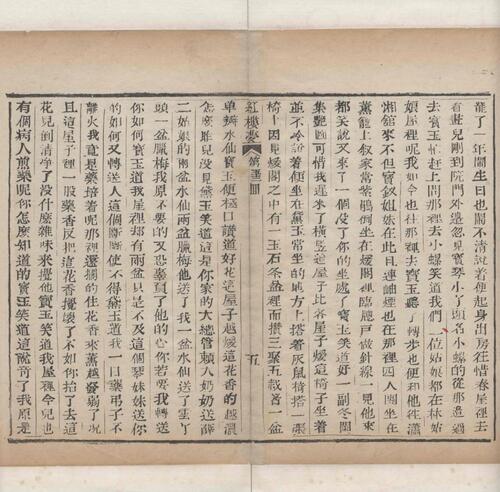 罷了一年鬧生日也鬧不清說着便起身出房往惜春屋裡去
看畫兒剛到院門外邊忽見寶琴小丫頭名小螺的從那邊過
去寶玉忙赶上問那裡去小螺笑道我們二位姑娘都在林姑
娘屋裡呢我如今也往那裡去寶玉聽了轉步也便和他往瀟
湘館來不但寶釵姐妹在此且連岫煙也在那裡四人圍坐在
薰籠上叙家常紫鵑倒坐在煖閣裡臨應戶做針線一見他來
都笑說又來了一個沒了你的坐處了寶玉笑道好一副冬閨
集艷圖可惜我遲來了橫豎這屋子比各屋子煖這椅子坐着
並不冷說着便坐在黛玉常坐的地方上搭着灰鼠椅搭一張
椅上因見煖閣之中有一玉石条盆裡面攢三聚五栽着一盆
紅樓夢 第 冊 五
單瓣水仙寶玉便極口讚道好花這屋子越煖這花香的越濃
怎麽昨兒沒見黛玉笑道這是你家的大總管賴大奶奶送薛
二姑娘的兩盆水仙兩盆臘梅他送了我一盆水仙送了雲丫
頭一盆臘梅我原不要的又恐辜負了他的心你若要我轉送
你如何寶玉道我屋裡却有兩盆只是不及這個琴妹妹送你
的如何又轉送人這個斷斷使不得黛玉道我一日藥弔子不
離火我竟是藥培着呢那裡還擱的住花香來薰越發弱了况
且這屋子裡一股藥香反把這花香攪壞了不如你抬了去這
花兒到清净了沒什麽雜味來攪他寶玉笑道我屋裡今兒也
有個病人煎藥呢你怎麽知道的寶玉笑道這就竒了我原是